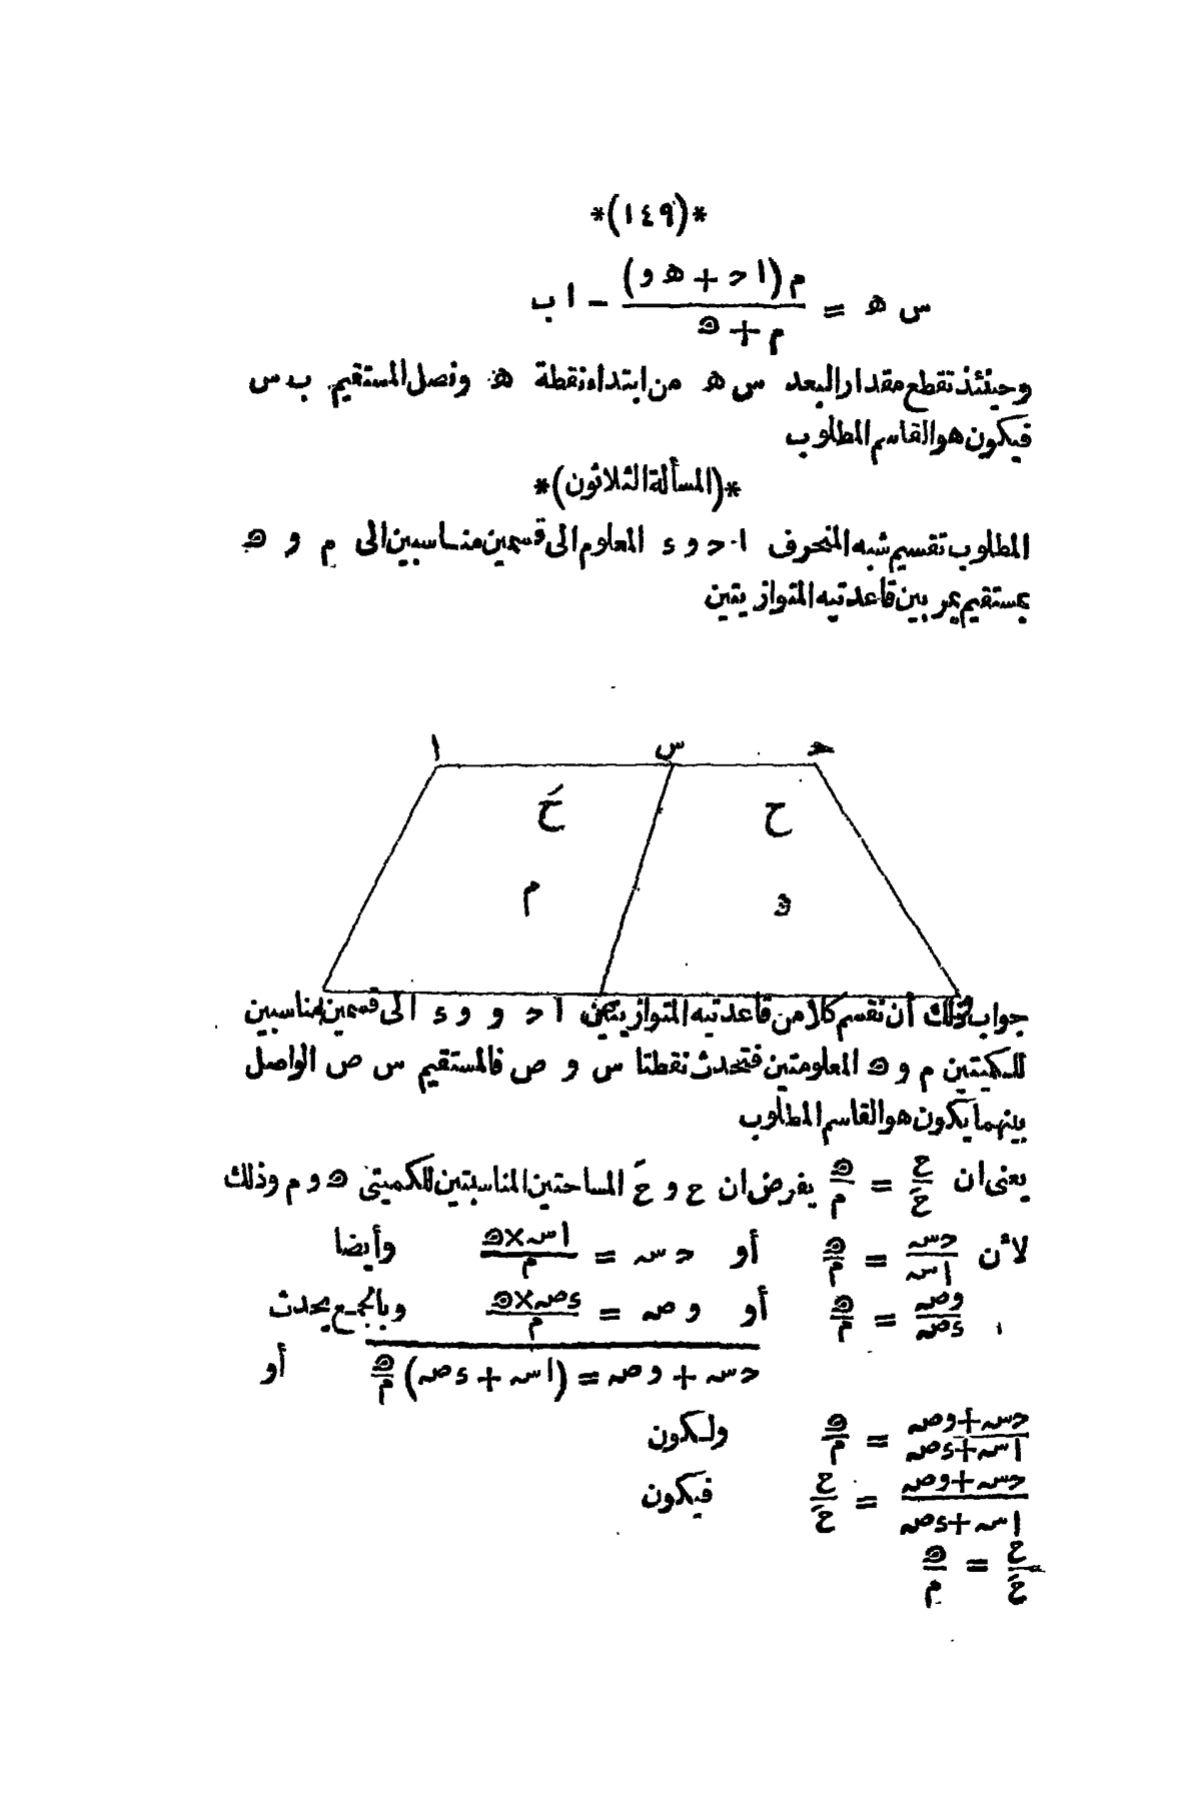 *(١٤٩)*
س ه = م(ا ح + ه و) / م + ن − ا ب
وحينئذ تقطع مقدار البعد س ه من ابتداء نقطة ه ونصل المستقيم ب س
فيكون هو القاسم المطلوب
*(المسألة الثلاثون)*
المطلوب تقسيم شبه المنحرف ا ح و ء المعلوم الى قسمين مناسبين الى م و ن
بمستقيم يمر بين قاعدتيه المتوازيتين
ا س ح
حَ ح
م ن
جواب ذلك أن نقسم كلا من قاعدتيه المتوازيتين ا ح و و ء الى قسمين مناسبين
للكميتين م و ن المعلومتين فتحدث نقطتا س و ص فالمستقيم س ص الواصل
بينهما يكون هو القاسم المطلوب
يعنى ان ح/حَ = ن/م بفرض ان ح و حَ المساحتين المناسبتين للكميتى ن و م وذلك
لأن حس/اس = ن/م أو حس = اس×ن/م وأيضا
وص/ءص = ن/م أو وص = ءص×ن/م وبالجمع يحدث
حس + وص = (اس + ءص) ن/م أو
حس+وص/اس+ءص = ن/م ولكون
حس+وص/اس+ءص = ح/حَ فيكون
ح/حَ = ن/م